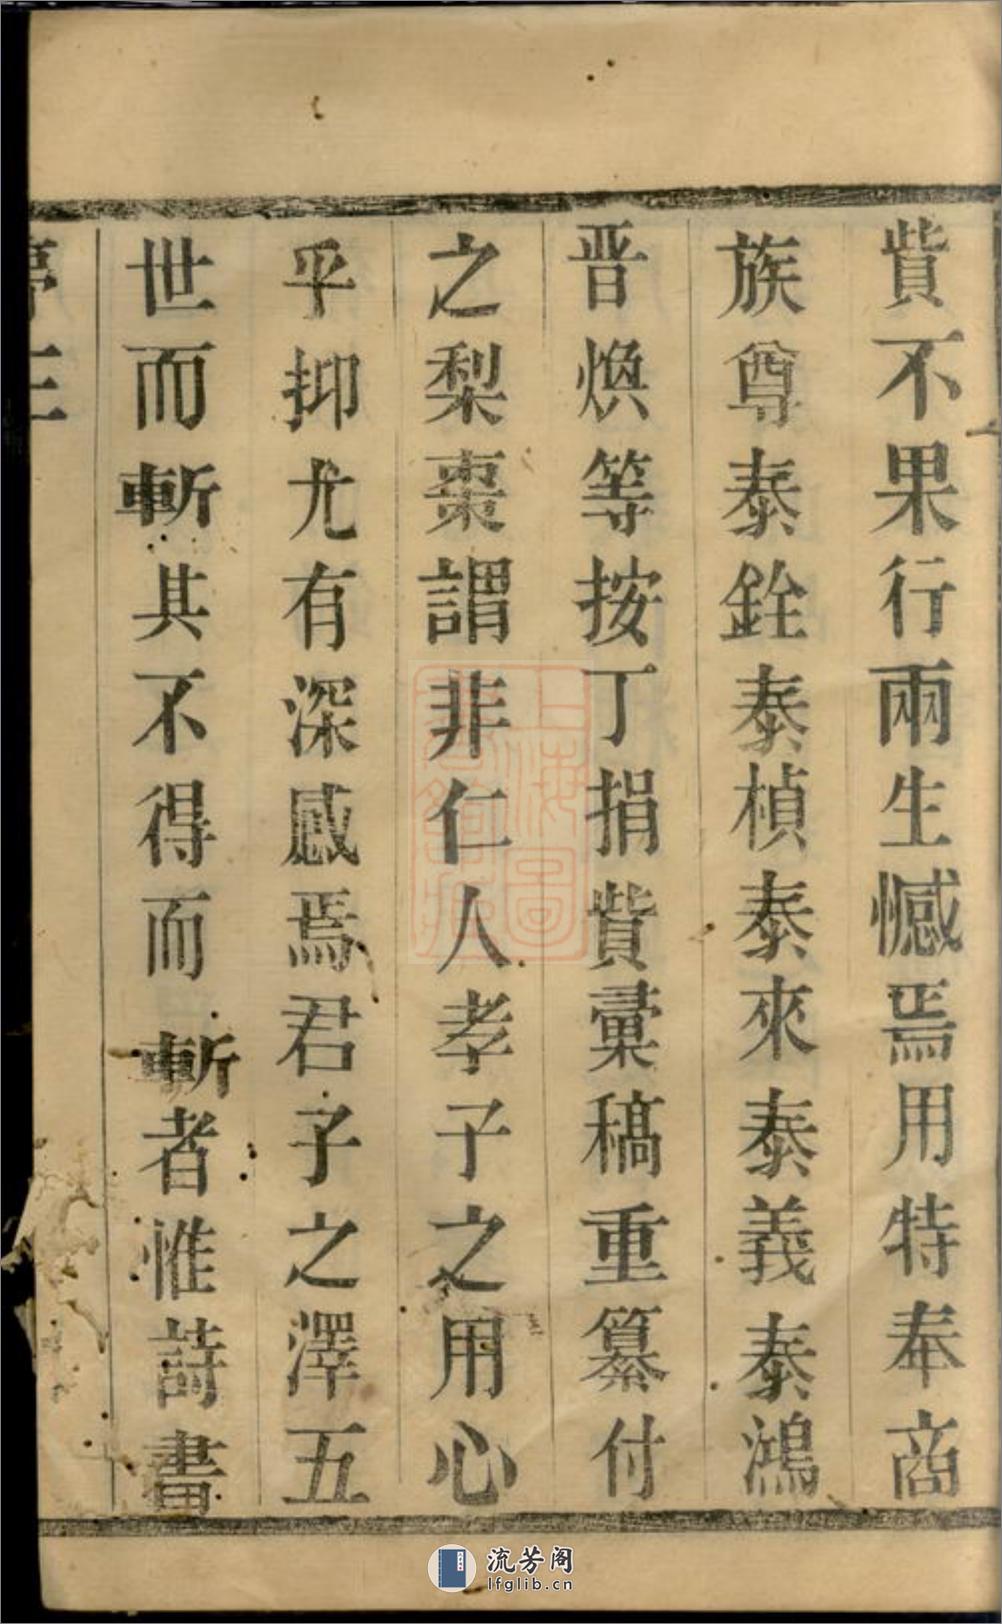 貲不果行兩生憾焉用特奉商
族尊泰銓泰楨泰來泰義泰鴻
晋煥等按丁捐貲彙稿重纂付
之梨棗謂非仁人孝子之用心
乎抑尤有深感焉君子之澤五
世而斬其不得而斬者惟詩書
上海圖
書館藏
流芳阁
lfglib.cn